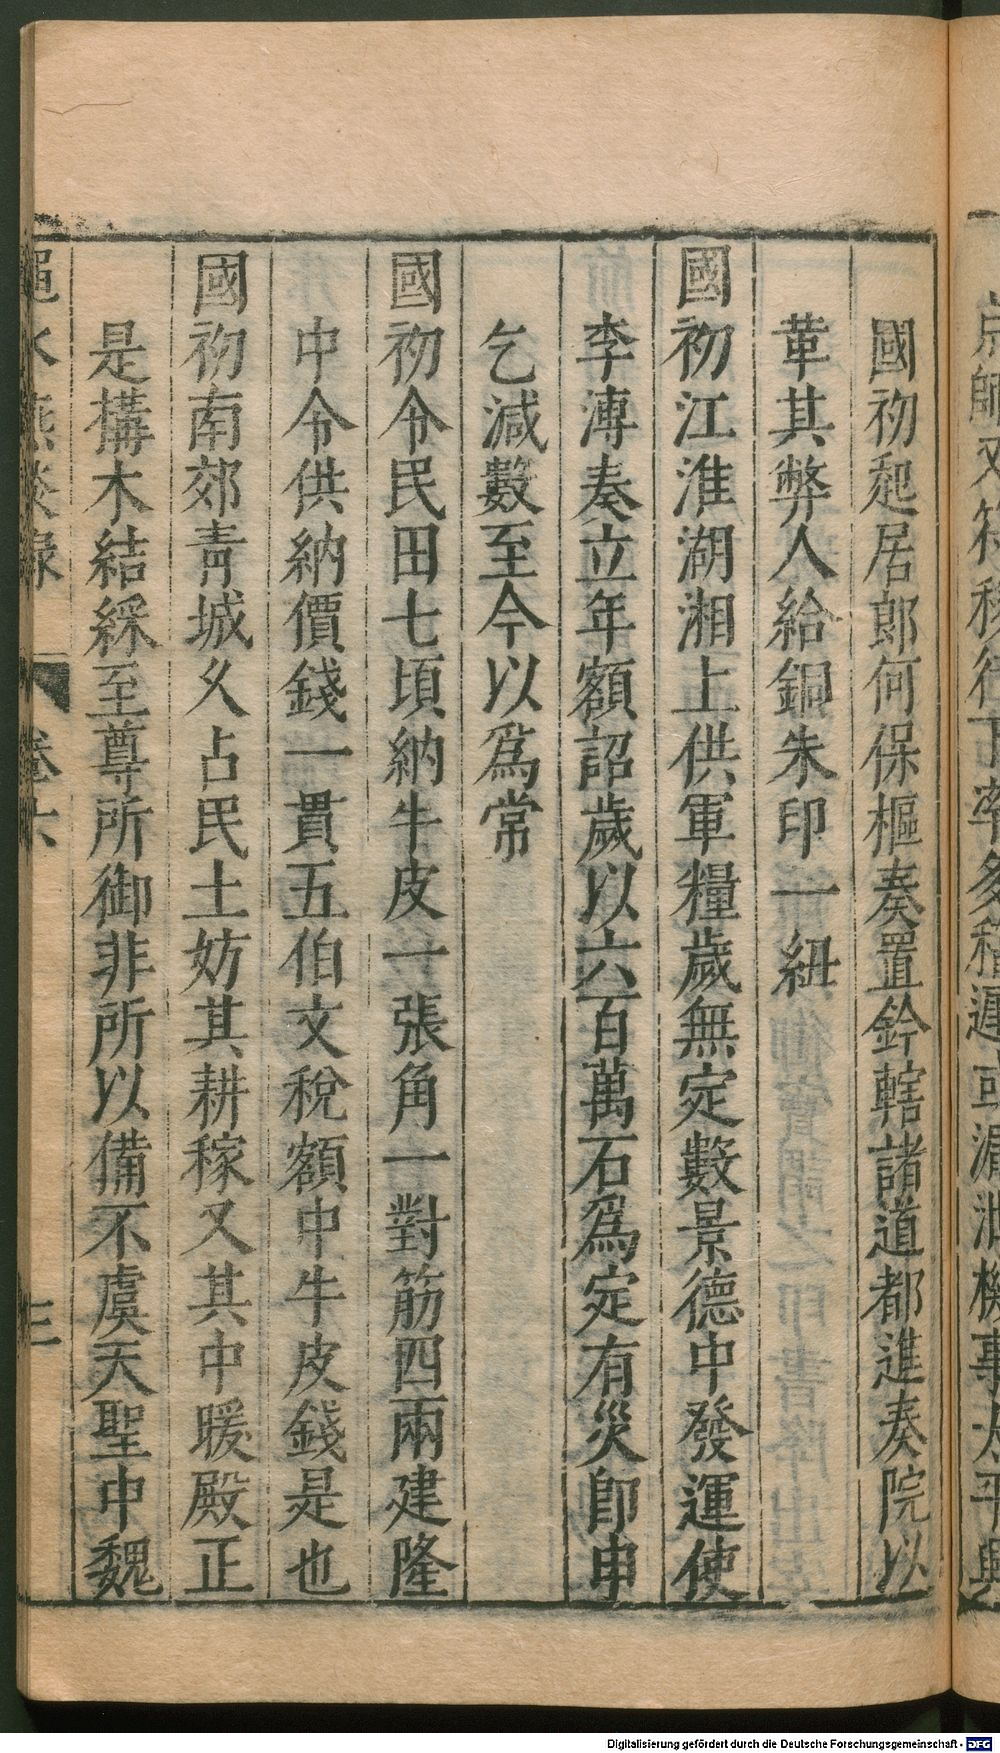 國初起居郎何保樞奏置鈐轄諸道都進奏院以
革其弊人給銅朱印一紐
國初江淮湖湘上供軍糧歲無定數景德中發運使
李溥奏立年額詔歲以六百萬石爲定有災即申
乞減數至今以爲常
國初令民田七頃納牛皮一張角一對筋四兩建隆
中令供納價錢一貫五伯文稅額中牛皮錢是也
國初南郊青城久占民土妨其耕稼又其中暖殿正
是構木結綵至尊所御非所以備不虞天聖中魏
澠水燕談錄 卷六 三
Digitalisierung gefördert durch die Deutsche Forschungsgemeinschaft - DFG